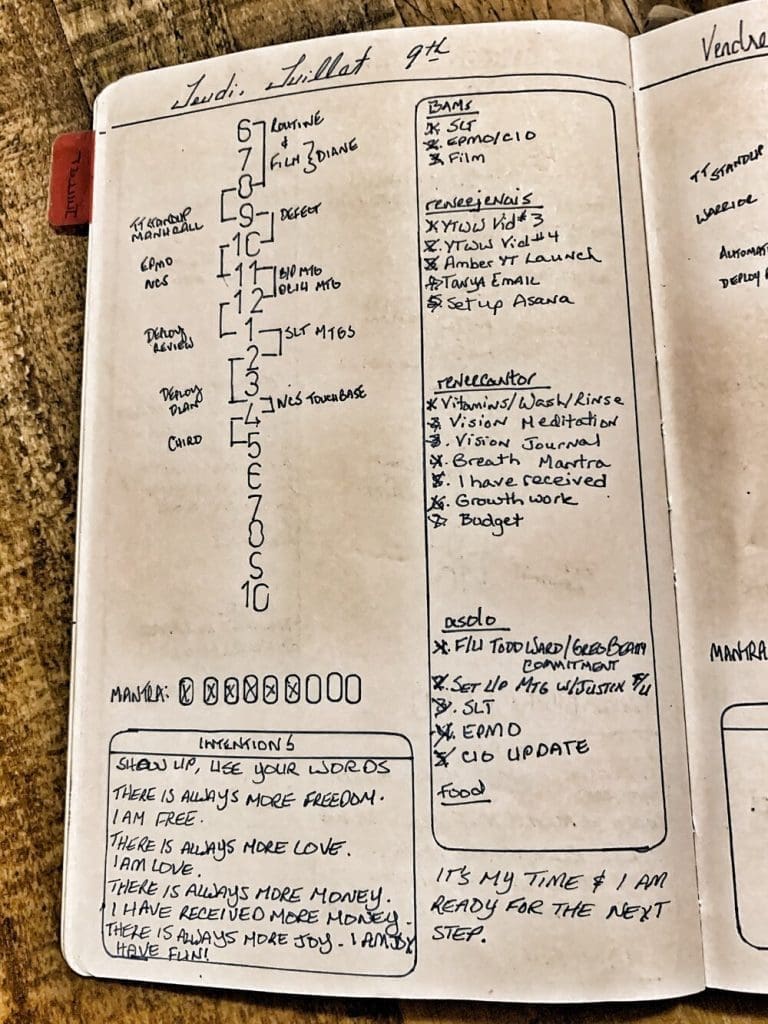 Jeudi. Juillat 9th
6
7
8
9
10
11
12
1
2
3
4
5
6
7
8
9
10
ROUTINE
&
FILM } DIANE
DEFECT
MTG
MTG
SLT MTGS
NCS TOUCHBASE
TT STANDUP
EPMO
NCS
DEPLOY
REVIEW
DEPLOY
PLAN
CHIRO
MANTRA:
INTENTIONS
SHOW UP, USE YOUR WORDS
THERE IS ALWAYS MORE FREEDOM.
I AM FREE.
THERE IS ALWAYS MORE LOVE.
I AM LOVE.
THERE IS ALWAYS MORE MONEY.
I HAVE RECEIVED MORE MONEY.
THERE IS ALWAYS MORE JOY. I AM JOY
HAVE FUN!
BAMS
SLT
EPMO/CIO
Film
reneejenais
YTWW Vid #3
YTWW Vid #4
Amber YT Launch
TANYA EMAIL
Set up Asana
reneecantor
Vitamins/Wash/Rinse
Vision Meditation
Vision Journal
Breath Mantra
I have received
Growth work
Budget
asolo
F/U TODD WARD/GREG BEAM
COMMITMENT
SET UP MTG W/JUSTIN F/U
SLT
EPMO
CIO UPDATE
Food
IT'S MY TIME & I AM
READY FOR THE NEXT
STEP.
Vendre
TT STANDUP
WARRIOR
AUTOMAT
DEPLOY
MANTRA